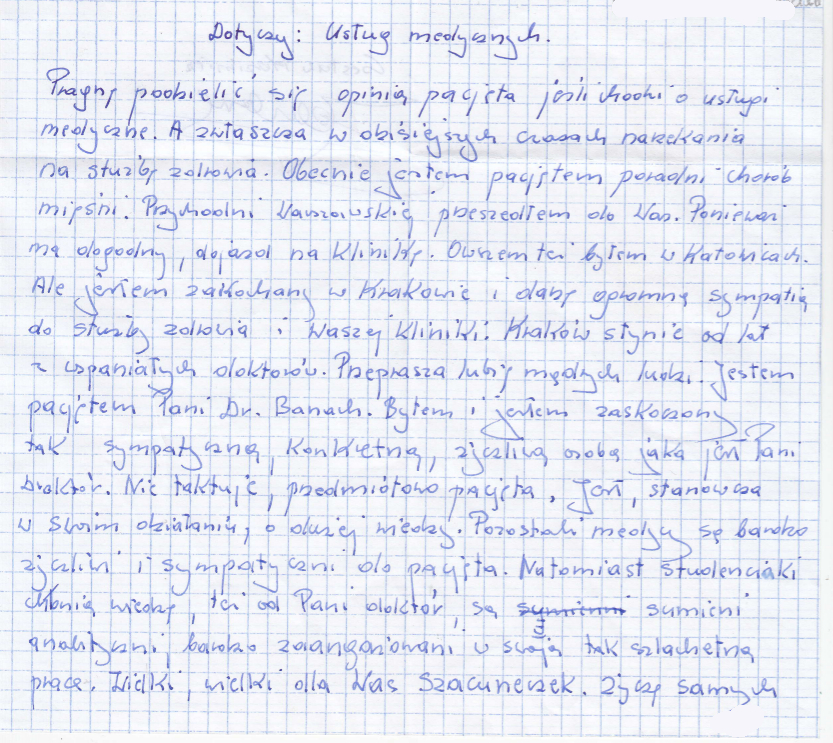 Dotyczy: Usług medycznych.
Pragnę podzielić się opinią pacjęta jeśli chodzi o usługi
medyczne. A zwłaszcza w dzisiejszych czasach narzekania
na służbę zdrowia. Obecnie jestem pacjętem poradni chorób
mięśni. Przychodni Warszawskię przeszedłem do Was. Ponieważ
ma dogodny, dojazd na Klinikę. Owszem też byłem w Katowicach.
Ale jestem zakochany w Krakowie i dażę ogromną sympatią
do służby zdrowia i Waszej Kliniki. Kraków słynie od lat
z wspaniałych doktorów. Przeprasza lubię mądrych ludzi. Jestem
pacjętem Pani Dr. Banach. Byłem i jestem zaskoczony
tak sympatyczną, Konkretną, życzliwą osobą jaką jest Pani
Doktór. Nie taktuje, przedmiotowo pacjęta, jest, stanowcza
w swoim działaniu, o dużej wiedzy. Pozostali medycy są bardzo
życzliwi i sympatyczni do pacjęta. Natomiast Studenciaki
chłoną wiedzę, też od Pani doktór, są sumieni
analityczni, bardzo zaangożowani w swoją tak szlachetną
pracę. Wielki, wielki dla Was Szacuneczek. Życzę samych